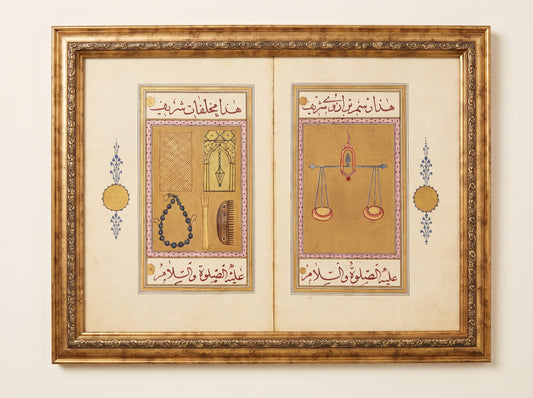 هذا رسم شريف
عليه الصلوة والسلام
هذا مخلفات شريف
عليه الصلوة والسلام